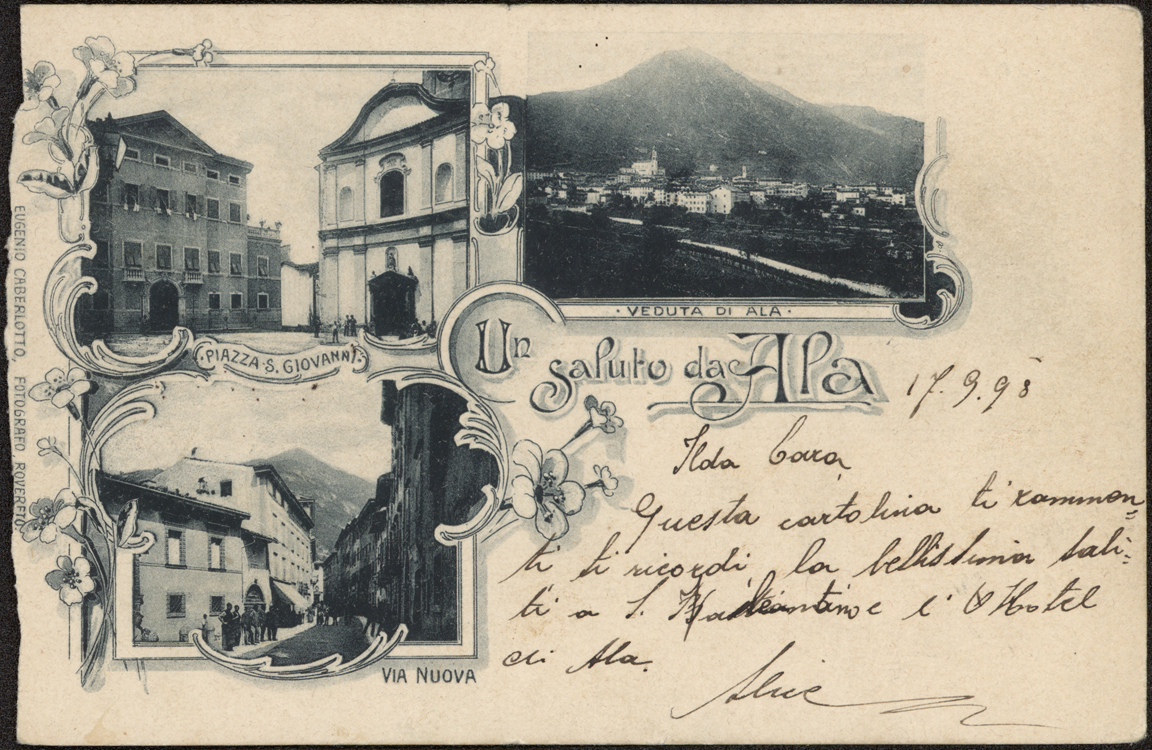 EUGENIO CABERLOTTO, FOTOGRAFO ROVERETO
·PIAZZA·S. GIOVANNI·
·VEDUTA DI ALA·
Un saluto da Ala
17.9.98
Ilda Cara
Questa cartolina ti rammen=
ti ti ricordi la bellissima sali=
ti a S. e l'Hotel
di Ala.
Alice
VIA NUOVA